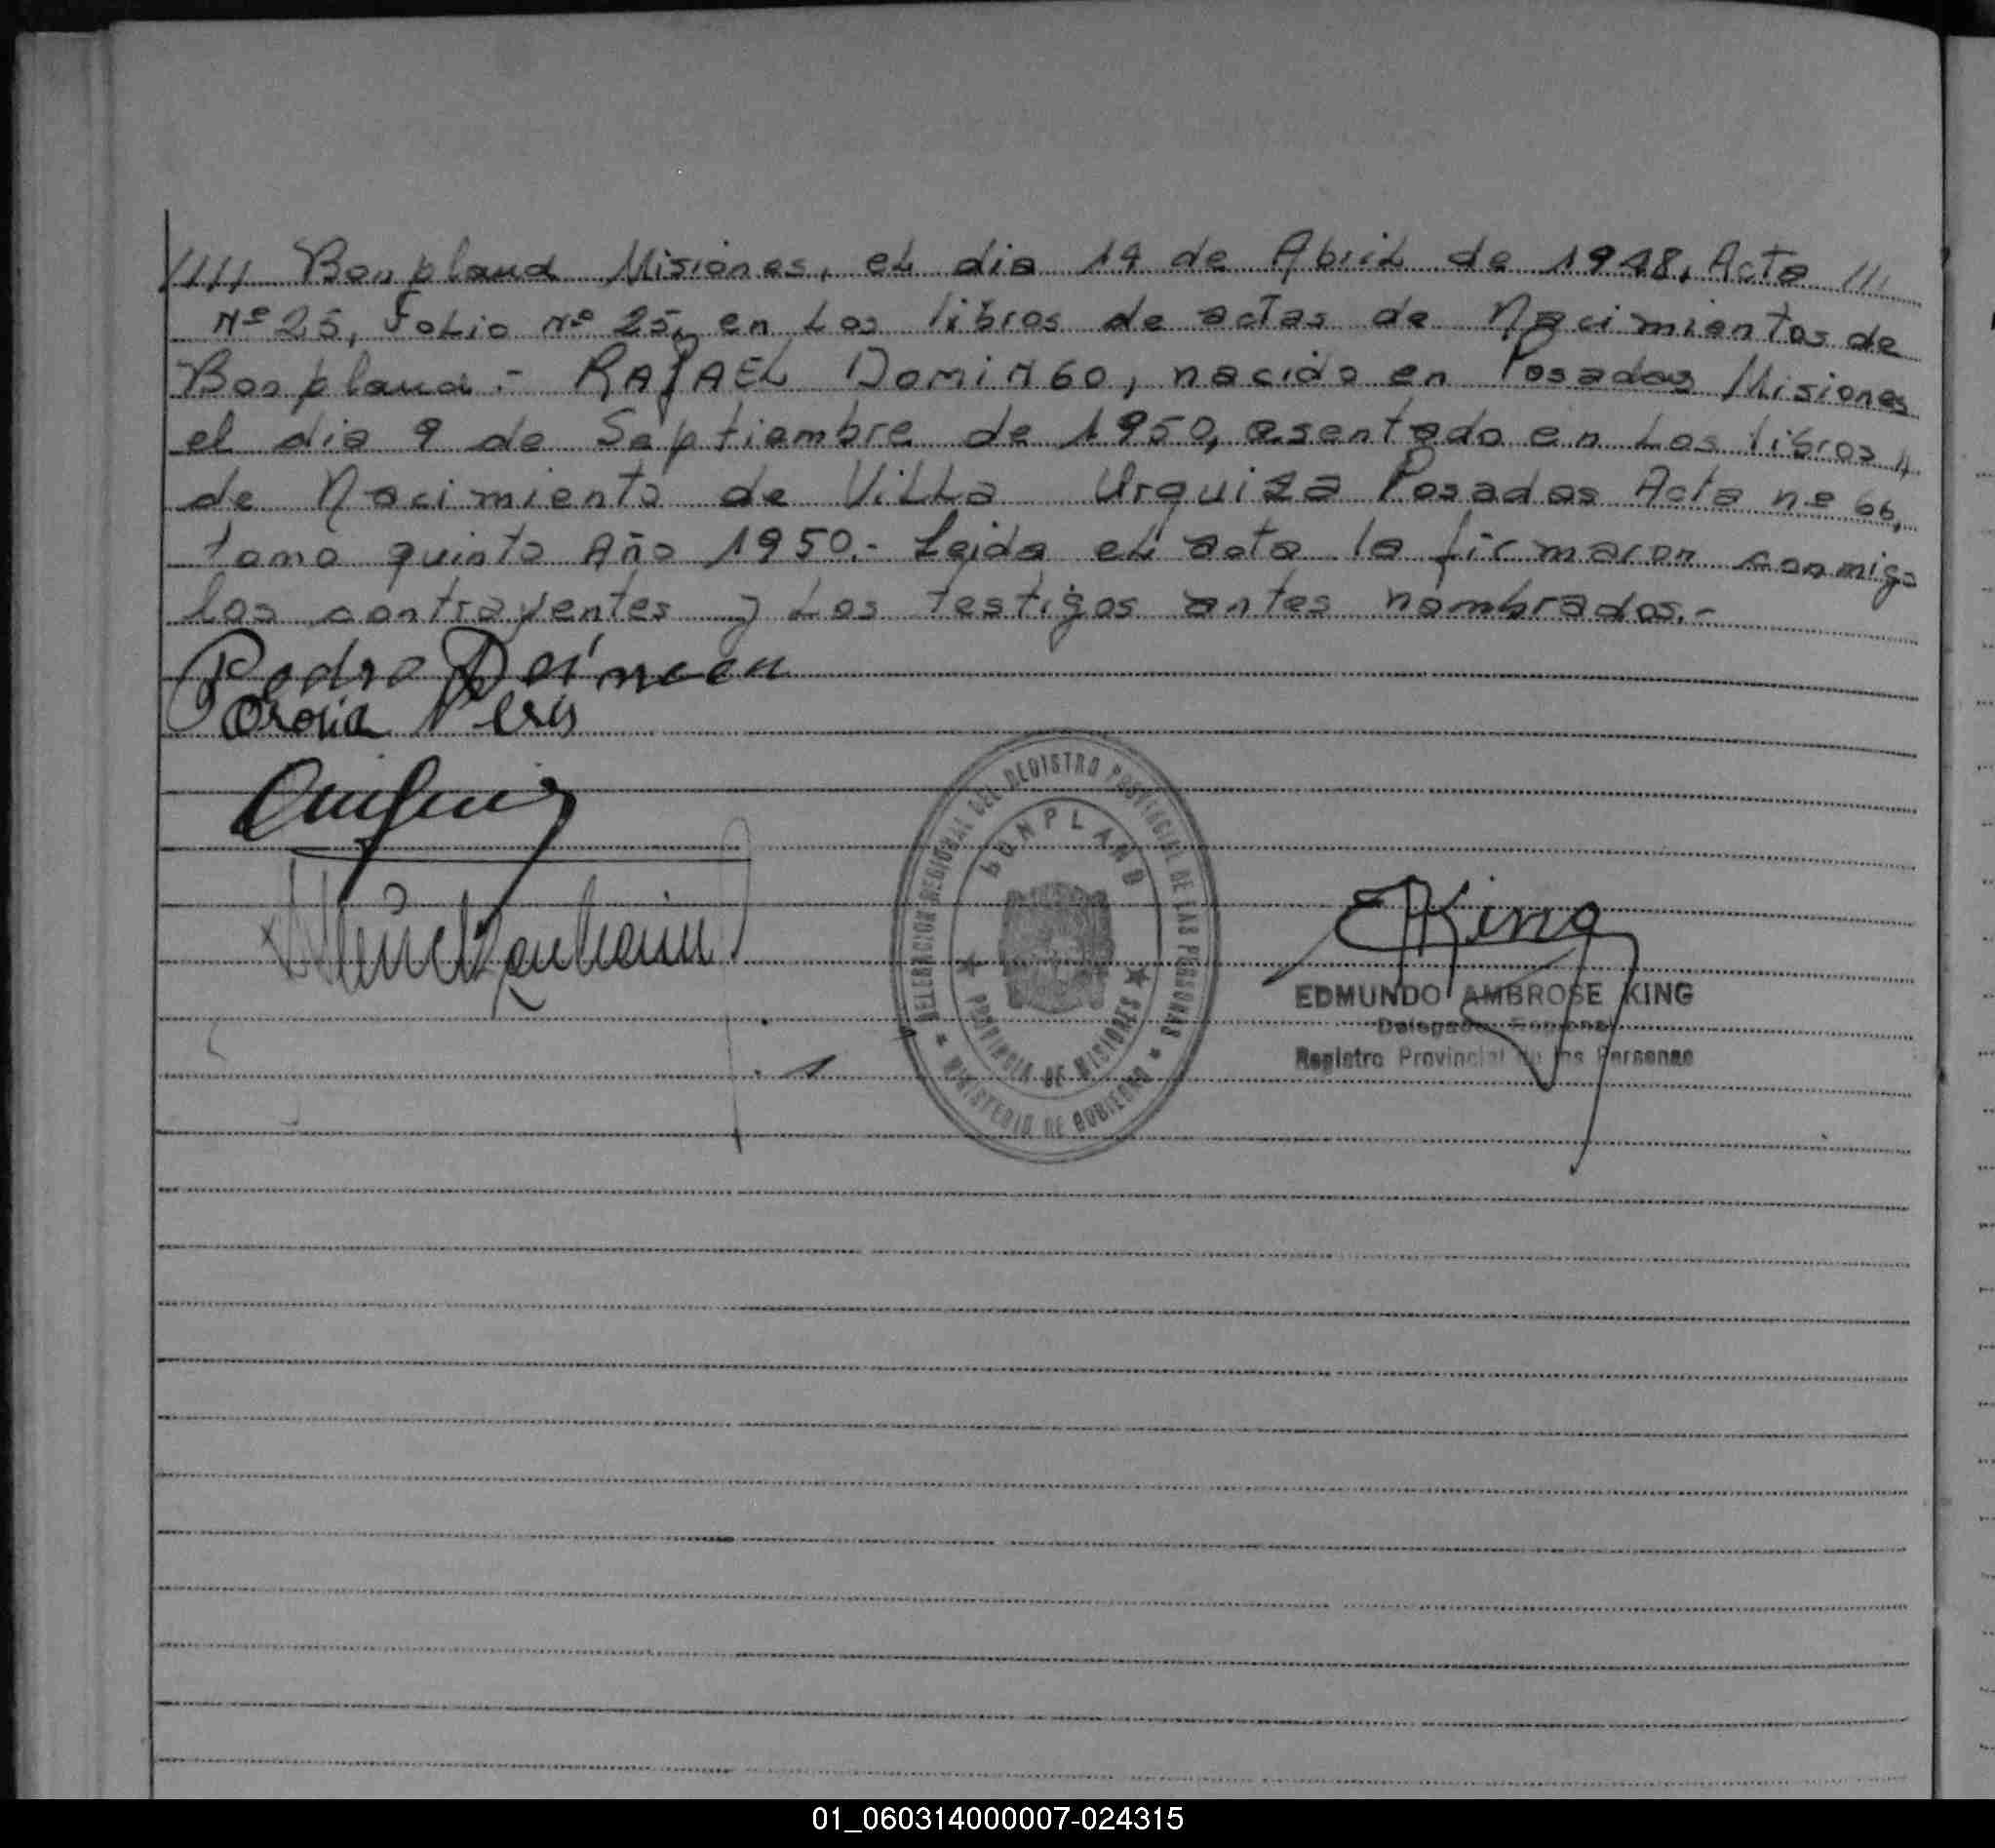 //// Bonpland Misiones, el dia 14 de Abril de 1948, Acta ///
Nº 25, Folio Nº 25, en los libros de actas de Nacimientos de
Bonpland.- RAFAEL DOMINGO, nacido en Posadas Misiones
el dia 9 de Septiembre de 1950, asentado en los libros //
de Nacimiento de Villa Urquiza Posadas Acta nº 66,
tomo quinto Año 1950.- Leida el acta la firmaron conmigo
los contrayentes y los testigos antes nombrados.-
Pedro
DELEGACION REGIONAL DEL REGISTRO PROVINCIAL DE LAS PERSONAS
BONPLAND
PROVINCIA DE MISIONES
MINISTERIO DE GOBIERNO
EKing
EDMUNDO AMBROSE KING
Delegado Regional
Registro Provincial de las Personas
01_060314000007-024315